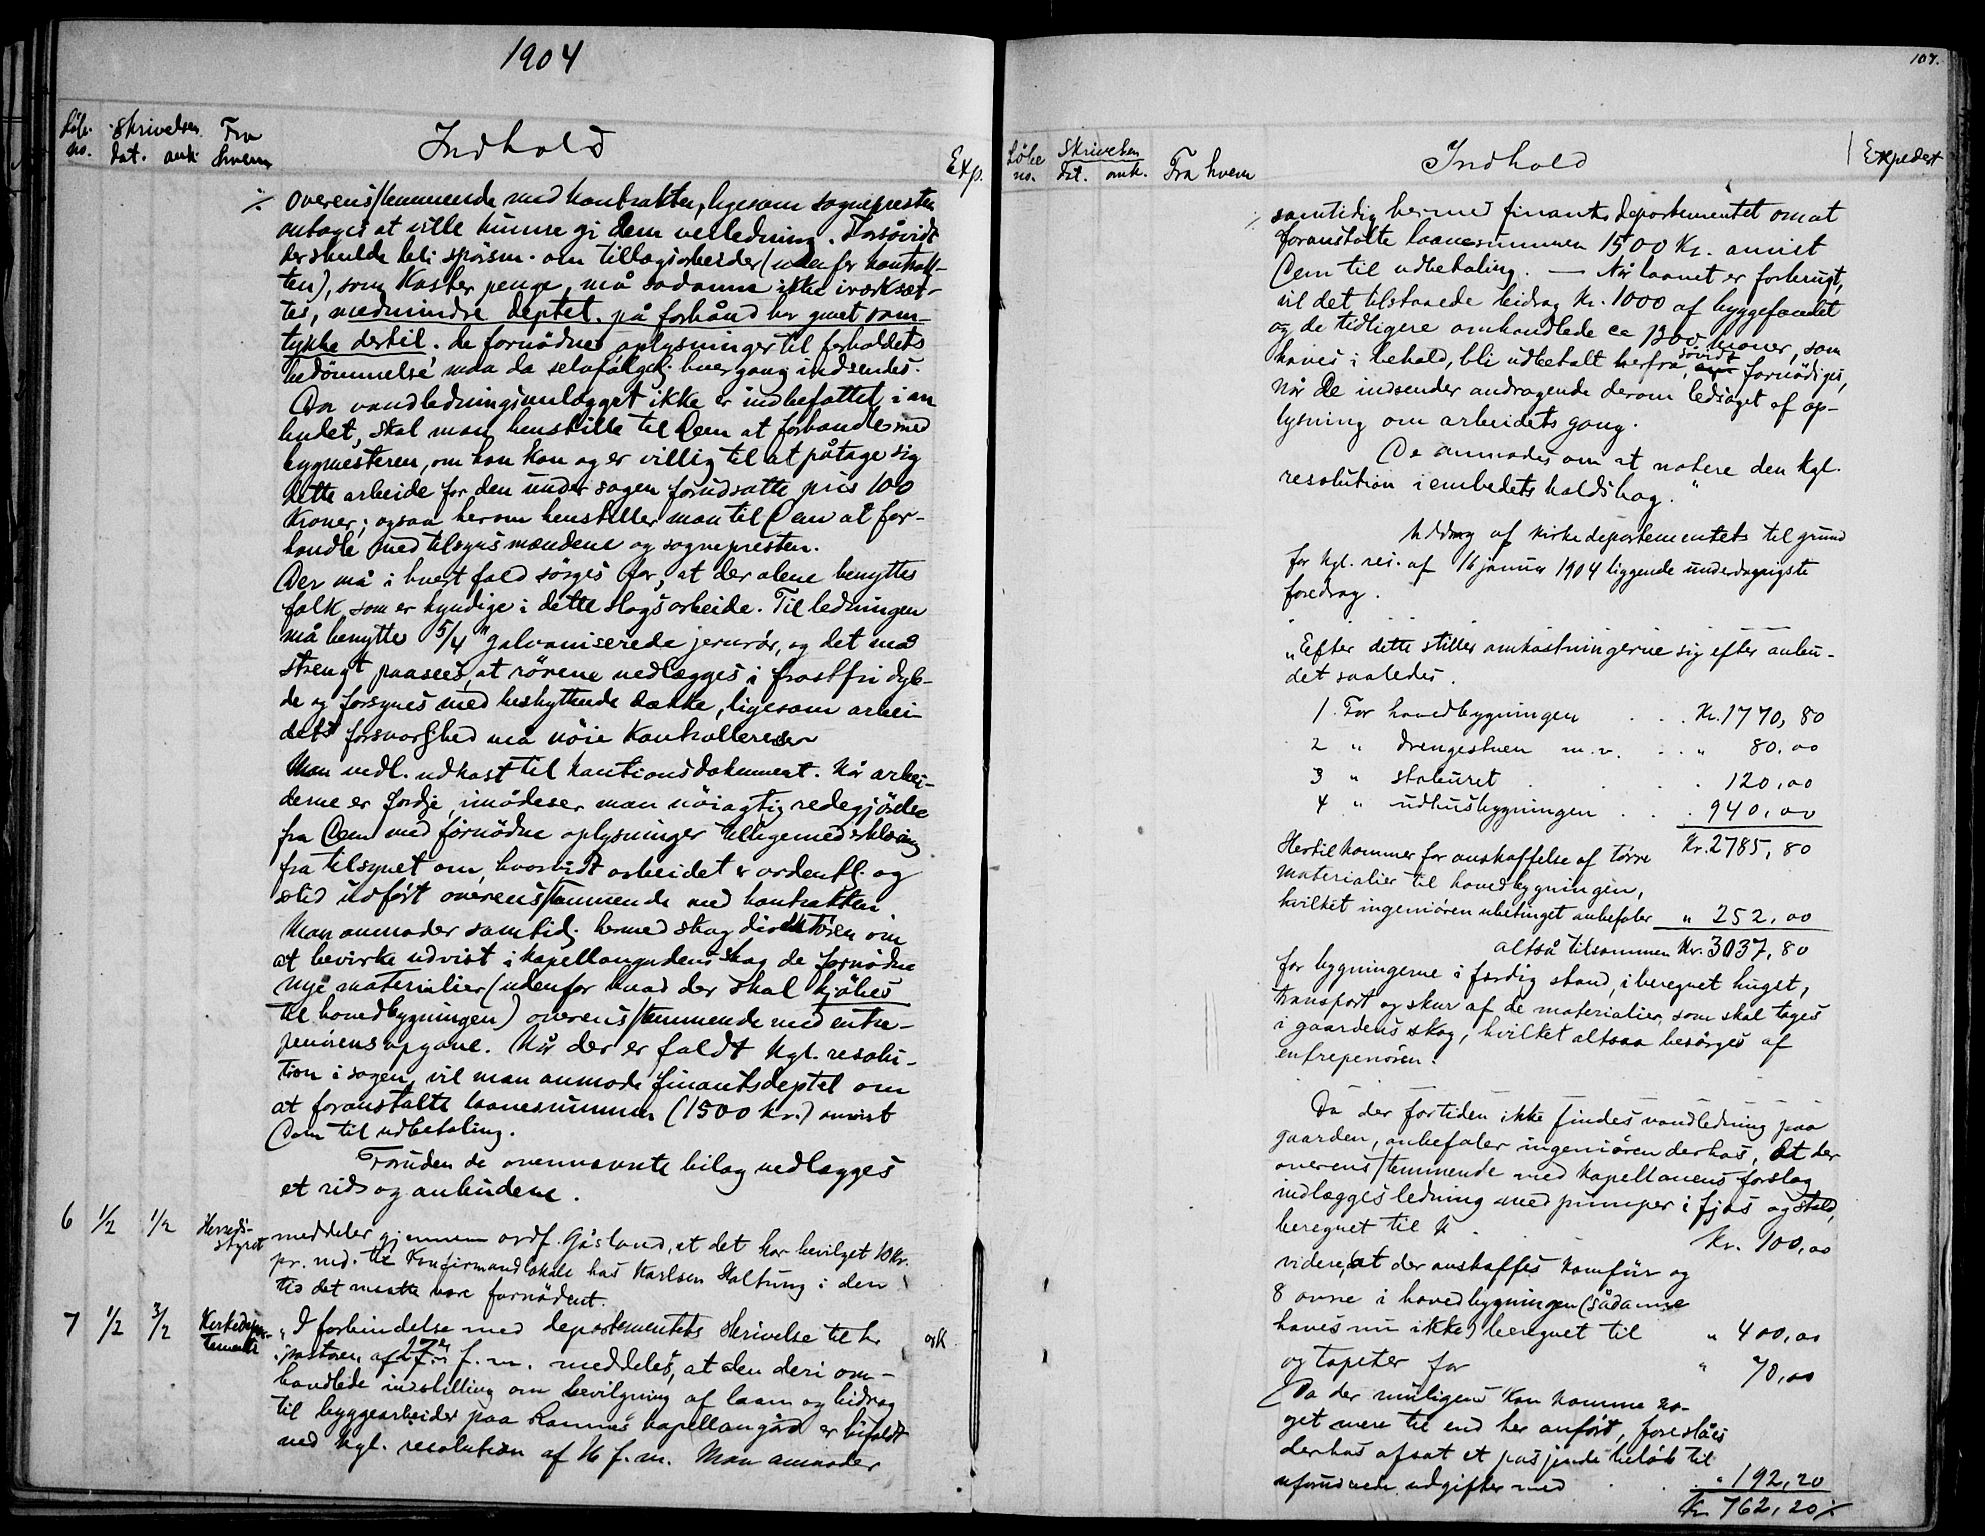 1904
Løbe no. Skrivelsen dat. ank. Fra hvem Indhold Exp.
./. overensstemmende med kontrakten, ligesom sognepresten
antages at ville kunne gi Dem veiledning. Forsøvidt
der skulde bli spörsm. om tillægsarbeider (udenfor kontrak-
ten), som koster penge, må sådanne ikke iverksæt-
tes, medmindre deptet. på forhånd har givet sam-
tykke dertil. de fornødne oplysninger til forholdets
bedömmelse maa da selvfölgel. hver gang indsendes.
Da vandledningsanlægget ikke er indbefattet i an
budet, skal man henstille til Dem at forhandle med
bygmesteren, om han kan og er villig til at påtage sig
dette arbeide for den under sagen forudsatte pris 100
Kroner; ogsaa herom henstiller man til Dem at for-
handle med tilsynsmændene og sognepresten.
Der må i hvert fald sörges for, at der alene benyttes
folk, som er kyndige i dette slags arbeide. Til ledningen
må benyttes 5/4" galvaniserede jernrör, og det maa
strengt paasees, at rörene nedlægges i frostfri dyb-
de og forsynes med beskyttende dække, ligesom arbei-
dets forsvarlighed må nöie kontrolleres
Man vedl. udkast til kautionsdokument. Når arbei-
derne er færdge, imödeser man nöiagtig redegjörelse
fra Dem med fornødne oplysninger tilligemed erklæring
fra tilsynet om, hvorvidt arbeidet er ordentl. og
solid udfört overensstemmende med kontrakten
Man anmoder samtidig hermed skogdirektören om
at bevirke udvist i kapellangaardens skog de fornødne
nye materialier (udenfor hvad der skal kjöbes
til hovedbygningen) overensstemmende med entre-
penörens opgave. Når der er faldt kgl. resolu-
tion i sagen, vil man anmode finantsdeptet om
at foranstalte laanesummen (1500 kr.) anvist
Dem til udbetaling.
Foruden de ovennævnte bilag vedlægges
et rids og anbudene.
6 1/2 1/2 Herreds-styret meddeler gjennem ordf. Gåsland, at det har bevilget 10 kr.
pr. md. til Konfirmandlokale hos Karlsen Haltung i den
tid det måtte være fornødent.
7 1/2 3/2 Kirkedepar-tementet „I forbindelse med departementets skrivelse til hr.
pastoren af 17de f. m. meddeles, at den deri om-
handlede indstilling om bevilgning af laan og bidrag
til byggearbeider paa Rannes kapellangård er bifaldt
ved kgl. resolution af 16 f. m. Man anmoder
107.
Løbe no. Skrivelsen dat. ank. Fra hvem Indhold Expedert
./. samtidig hermed finantsdepartementet om at
foranstalte laanesummen 1500 Kr. anvist
Dem til udbetaling. — Når laanet er forbrugt,
vil det tilstaaede bidrag Kr. 1000 af byggefondet
og de tidligere omhandlede ca 1200 kroner, som
haves i behold, bli udbetalt herfra, såvidt fornödiges,
når De indsender andragende derom ledsaget af op-
lysning om arbeidets gang.
De anmodes om at notere den kgl.
resolution i embedets kaldsbog."
Uddrag af kirkedepartementets til grund
for kgl. res. af 16 januar 1904 liggende underdanigste
foredrag.
„Efter dette stiller omkostningerne sig efter anbu-
det saaledes.
1. For hovedbygningen . . . Kr. 1770,80
2 " drengestuen m.v. . . " 80,00
3 " staburet . . . 120,00
4 " udhusbygningen . . . 940,00
Kr. 2785,80
Hertil kommer for anskaffelse af törre
materialier til hovedbygningen,
hvilket ingeniören ubetinget anbefaler " 252,00
altså tilsammen Kr. 3037,80
for bygningerne i færdig stand, iberegnet hugst,
transport og skur af de materialier, som skal tages
i gaardens skog, hvilket altsaa besörges af
entrepenören.
Da der fortiden ikke findes vandledning paa
gaarden, anbefaler ingeniören derhos, at der
overensstemmende med kapellanens forslag
indlægges ledning med pumper i fjös og stald,
beregnet til K . Kr. 100,00
videre, at der anskaffes komfür og
8 ovne i hovedbygningen (sådanne
haves nu ikke) beregnet til " 400,00
og tapeter for " 70,00
Da der muligens kan komme no-
get mere til end her anfört, foreslåes
derhos afsat et passende belöb til
uforudseede udgifter med . . " 192,20
Kr 762,20 ./.